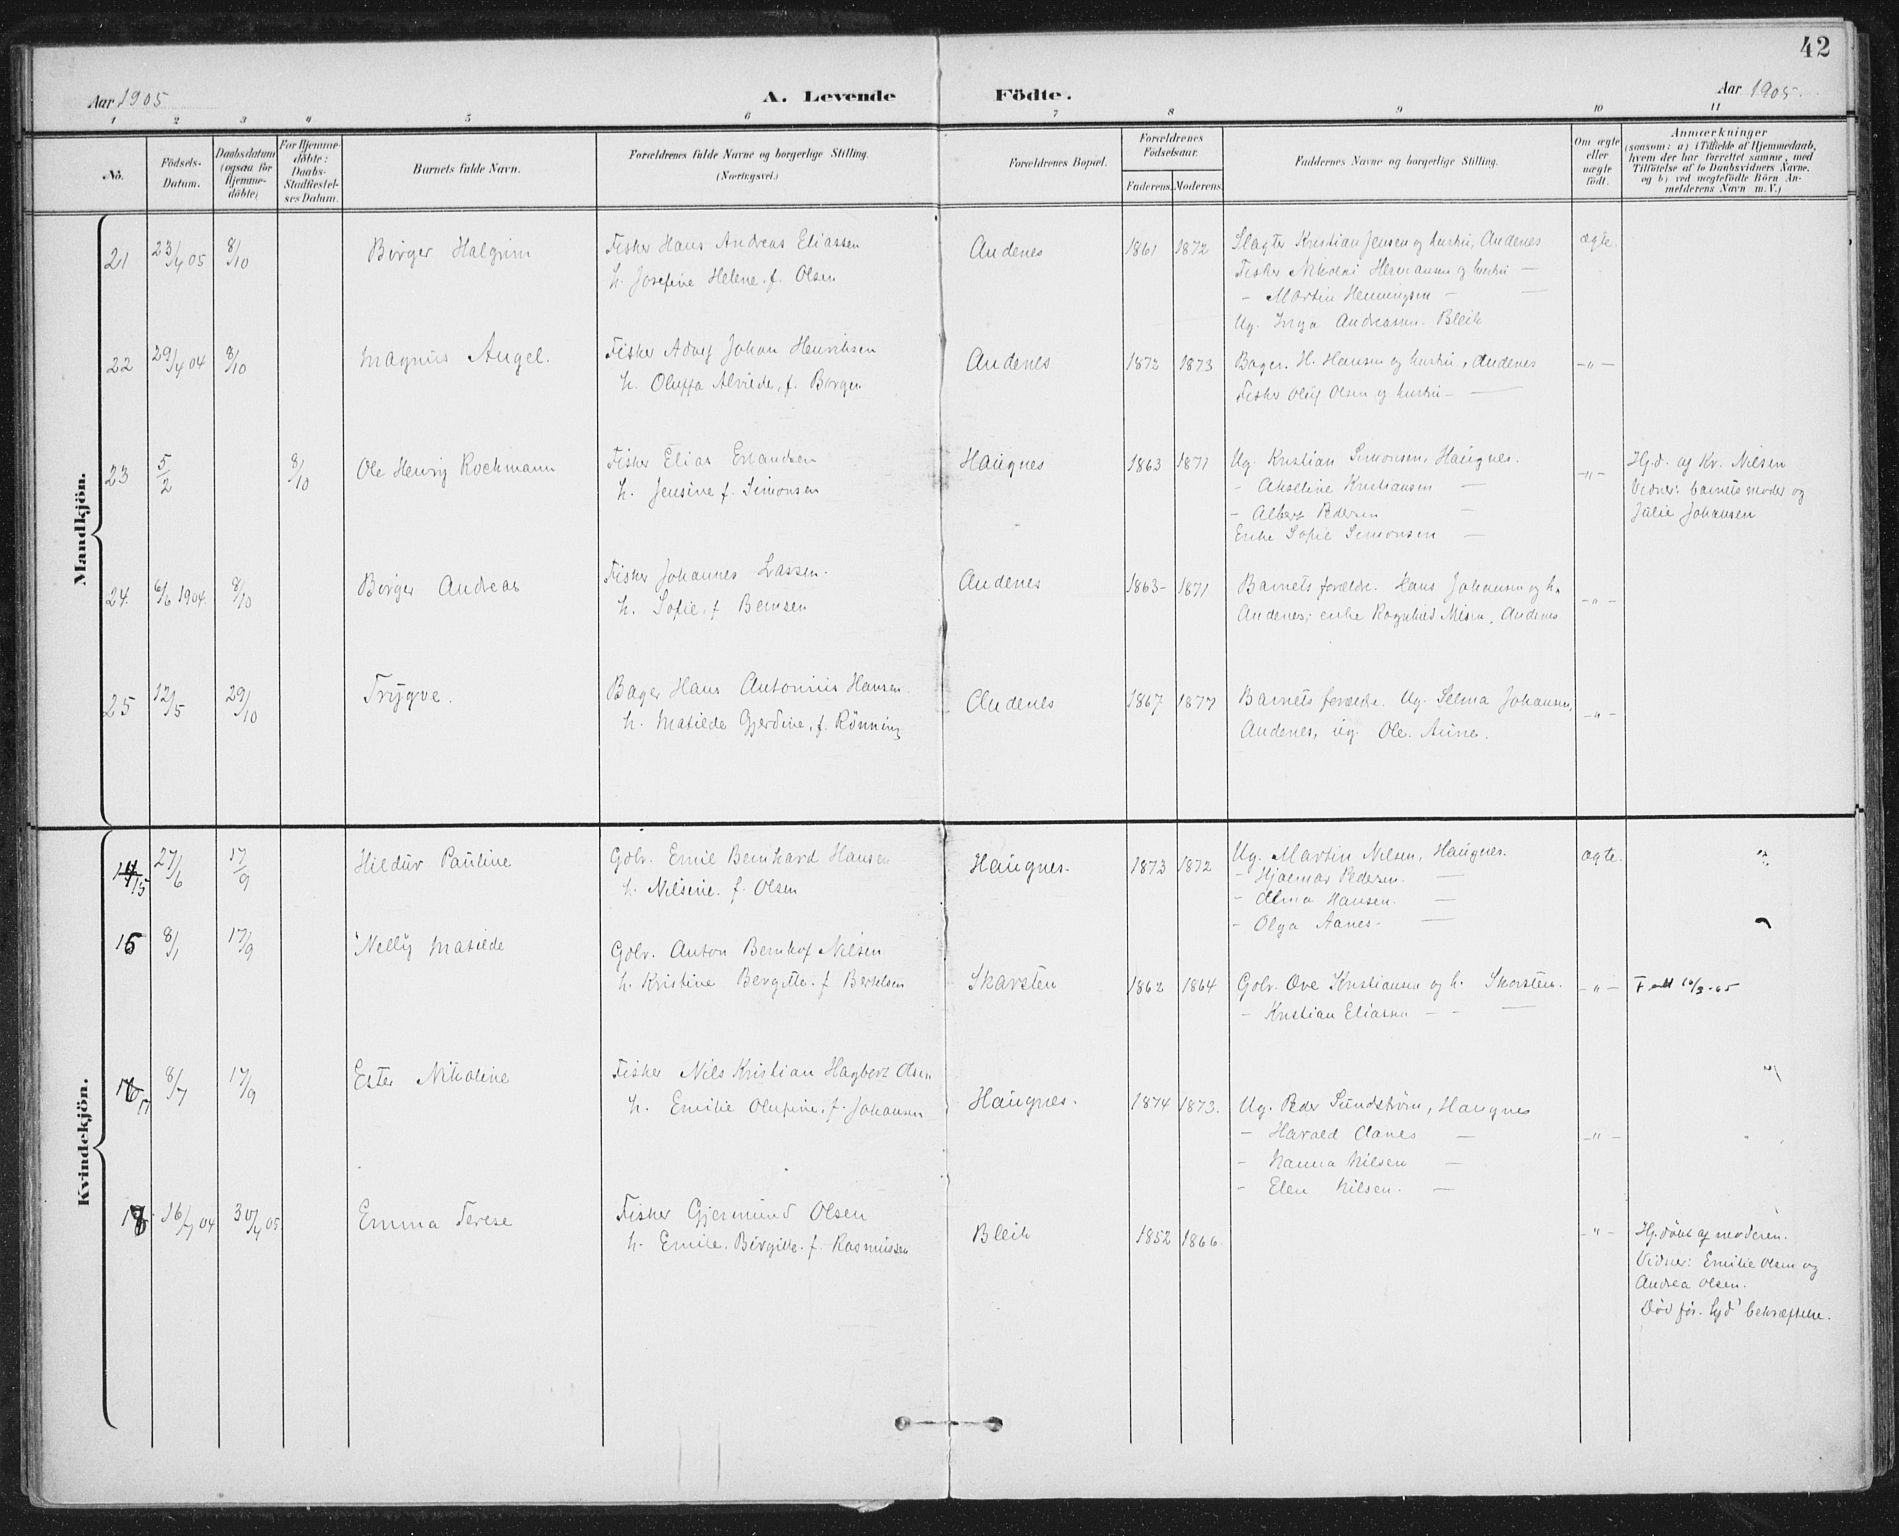 42
Aar 1905
A. Levende Födte.
Aar 1905.
1 2 3 4 5 6 7 8 9 10 11
No.
Födsels-
Datum.
Daabsdatum
(ogsaa for
Hjemme-
döbte)
For Hjemme-
döbte:
Daabs-
Stadfæstel-
ses Datum.
Barnets fulde Navn.
Forældrenes fulde Navne og borgerlige Stilling.
(Næringsvei.)
Forældrenes Bopæl.
Forældrenes
Födselsaar.
Faderens. Moderens.
Faddernes Navne og borgerlige Stilling.
Om ægte
eller
uægte
födt.
Anmærkninger
(saasom: a) i Tilfælde af Hjemmedaab,
hvem der har forrettet samme, med
Tilföielse af to Daabsvidners Navne,
og b) ved uægtefödte Börn An-
melderens Navn m. V.)
Mandkjön.
21 23/4 05 8/10 Birger Halgrim
Fisker Hans Andreas Eliassen
h. Josefine Helene f. Olsen
Andenes 1861 1872
Slagter Kristian Jensen og hustru, Andenes
Fisker Nikolai Hermansen og hustru —
– Martin Henningsen – —
Ug. Inga Andreassen Bleik
ægte.
22 29/4 04 8/10 Magnus Angel.
Fisker Adolf Johan Henriksen
h. Oluffa Alvilde, f. Borgen
Andenes 1872 1873
Bager H. Hansen og hustru, Andenes
Fisker Oluf Olsen og hustru – —
–"–
23 5/2 8/10 Ole Henrij Rochmann
Fisker Elias Erlandsen
h. Jensine f. Simonsen
Haugnes 1863 1871
Ug. Kristian Simonsen, Haugnes.
– Akseline Kristiansen —
– Albert Pedersen —
Enke Sofie Simonsen —
–"–
Hj.d. af Kr. Nilsen
Vidner: barnets moder og
Julie Johansen
24. 6/6 1904. 8/10 Birger Andreas
Fisker Johannes Lassen.
h. Sofie, f. Berntsen
Andenes 1863– 1871
Barnets forældre. Hans Johansen og h.
Andenes; enke Ragnhild, Andenes
–"–
25 12/5 29/10 Trygve.
Bager Hans Antonius Hansen.
h. Matilde Gjerdine, f. Rønning
Andenes 1867 1877
Barnets forældre. Ug. Selma Johansen,
Andenes, ug. Ole Aune.
–"–
Kvindekjön.
14/15 27/6 17/9 Hildur Pauline
Gbr. Emil Bernhard Hansen
h. Nilsine f. Olsen
Haugnes. 1873 1872
Ug. Martin Nilsen, Haugnes.
– Hjalmar Pedersen. —
– Alma Hansen. —
– Olga Aanes. —
ægte.
16 8/1 17/9 Nelly Matilde
Gbr. Anton Bernhof Nilsen
h. Kristine Bergitte f. Bertelsen
Skarsten 1862 1864
Gbr. Ove Kristiansen og h. Skarsten.
– Kristian Eliassen – – —
–"–
Født 10/3-05
16 17 8/7 17/9 Ester Nikoline
Fisker Nils Kristian Hagbert Olsen
h. Emilie Olufine, f. Johansen
Haugnes. 1874 1873.
Ug. Peder Sundstrøm, Haugnes
– Harald Aanes —
– Hanna Nilsen —
– Elen Nilsen. —
–"–
18 16/7 04 30/4 05 Emma Terese
Fisker Gjermund Olsen
h. Emilie Birgitte f. Rasmussen
Bleik 1852 1866.
–"–
Hj.døbt af moderen.
Vidner: Emilie Olsen og
Andrea Olsen.
Død før bekræftelse.